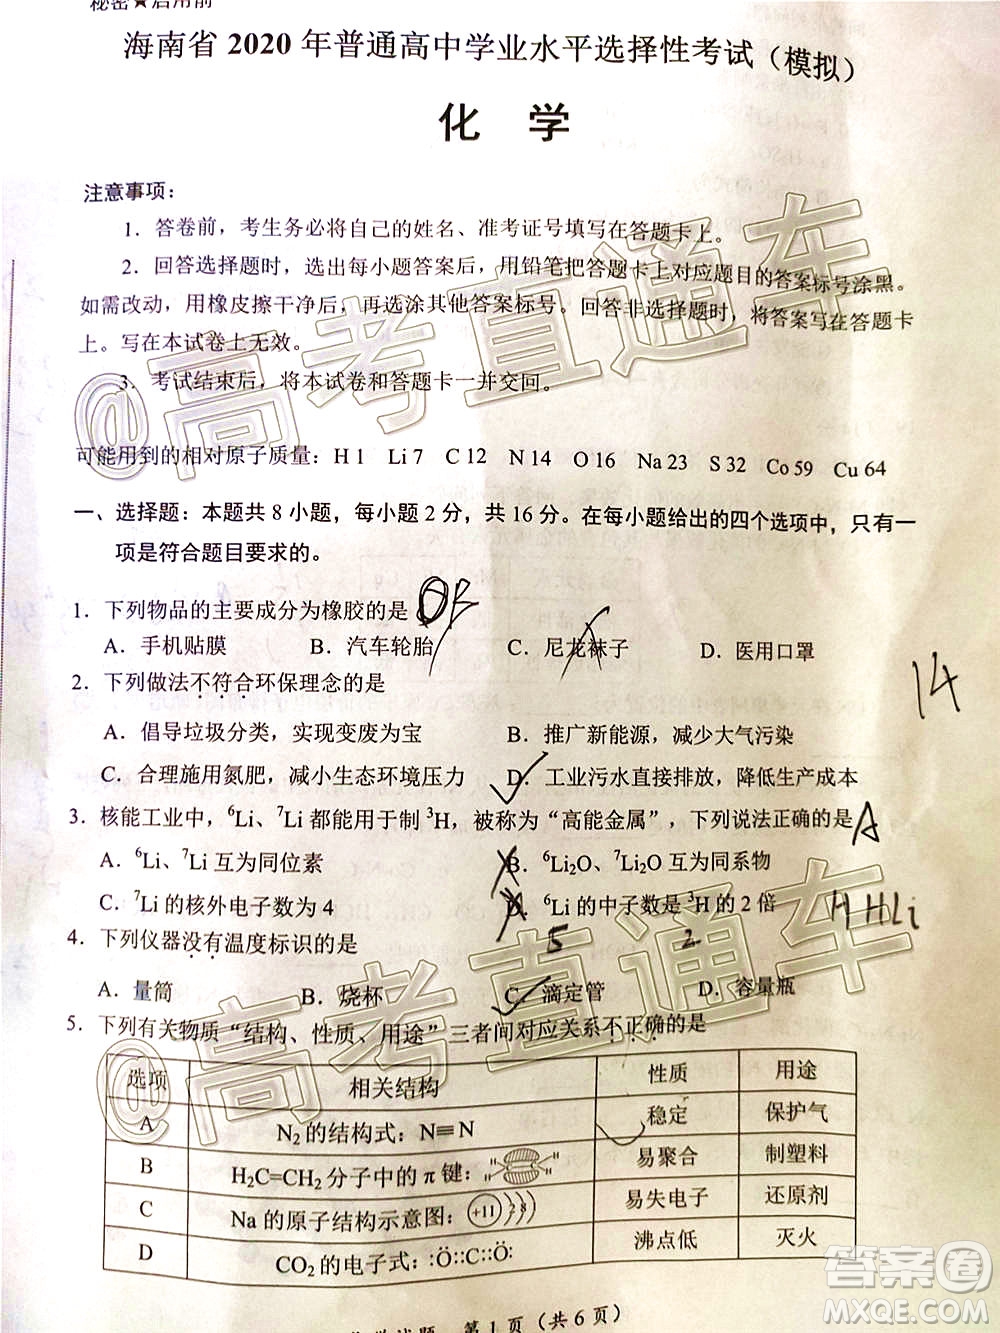 秘密★启用前
海南省2020年普通高中学业水平选择性考试（模拟）
化 学
注意事项：
1．答卷前，考生务必将自己的姓名、准考证号填写在答题卡上。
2．回答选择题时，选出每小题答案后，用铅笔把答题卡上对应题目的答案标号涂黑。
如需改动，用橡皮擦干净后，再选涂其他答案标号。回答非选择题时，将答案写在答题卡
上。写在本试卷上无效。
3．考试结束后，将本试卷和答题卡一并交回。
@高考直通车
可能用到的相对原子质量：H 1 Li 7 C 12 N 14 O 16 Na 23 S 32 Co 59 Cu 64
一、选择题：本题共 8 小题，每小题 2 分，共 16 分。在每小题给出的四个选项中，只有一
项是符合题目要求的。
1．下列物品的主要成分为橡胶的是 B
A．手机贴膜 B．汽车轮胎 C．尼龙袜子 D．医用口罩
14
2．下列做法不符合环保理念的是
A．倡导垃圾分类，实现变废为宝 B．推广新能源，减少大气污染
C．合理施用氮肥，减小生态环境压力 D．工业污水直接排放，降低生产成本
3．核能工业中，⁶Li、⁷Li 都能用于制 ³H，被称为“高能金属”，下列说法正确的是 A
A．⁶Li、⁷Li 互为同位素 B．⁶Li₂O、⁷Li₂O 互为同系物
C．⁷Li 的核外电子数为 4 D．⁶Li 的中子数是 ³H 的 2 倍 H HLi
5 2
4．下列仪器没有温度标识的是
A．量筒 B．烧杯 C．滴定管 D．容量瓶
5．下列有关物质“结构、性质、用途”三者间对应关系不正确的是
@高考直通车
选项 相关结构 性质 用途
A N₂ 的结构式：N≡N 稳定 保护气
B H₂C=CH₂ 分子中的 π 键： 易聚合 制塑料
C Na 的原子结构示意图：+11 2 8 易失电子 还原剂
D CO₂ 的电子式：:Ö:C:Ö: 沸点低 灭火
化学试题 第 1 页（共 6 页）
答案圈
MXQE.COM